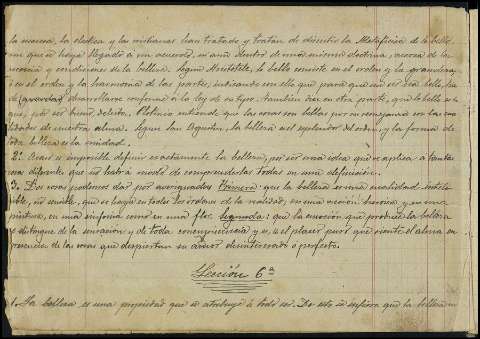 la escocesa, la eléctica y las cristianas han tratado y tratan de discutir la Metafísica de lo bello
sin que se haya llegado á un acuerdo, ni aun dentro de una misma doctrina, acerca de la
esencia y condiciones de la belleza. Según Aristóteles, lo bello consiste en el orden y la grandeza,
ó en el orden y la harmonía de las partes, indicando con ello que para que un ser sea bello, ha
de (guardar) desarrollarse conforme á la ley de su tipo; también dice en otra parte, que lo bello es lo
que, por ser bueno, deleita. Plotino entiende que las cosas son bellas por su semejanza con las cua
lidades de nuestra alma. Según San Agustín, la belleza es el esplendor del orden, y la forma de
toda belleza es la unidad.
2ª. Acaso es imposible definir exactamente la belleza, por ser una idea que se aplica a tantas
cosas diferentes, que no habrá modo de comprenderlas todas en una definición.
3. Dos cosas podemos dar por averiguadas. Primera: que la belleza es una cualidad inteli-
gible, no sensible, que se halla en todos los órdenes de la realidad, en una acción heroica y en una
pintura, en una sinfonía como en una flor. Segunda: que la emoción que produce la belleza
se distingue de la sensación y de toda concupiscencia y es, el placer puro que siente el alma en
presencia de las cosas que despiertan su amor desinteresado o perfecto.
Lección 6ª
1. La belleza es una propiedad que se atribuye á todo ser. De esto se infiere que la belleza